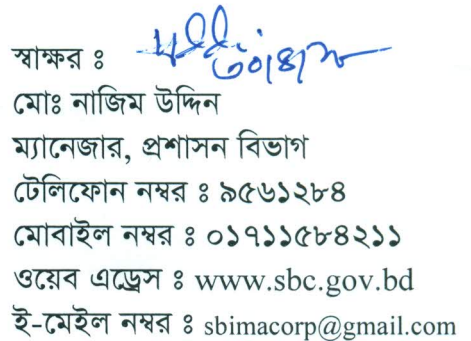 স্বাক্ষর ঃ
মোঃ নাজিম উদ্দিন
ম্যানেজার, প্রশাসন বিভাগ
টেলিফোন নম্বর ঃ ৯৫৬১২৮৪
মোবাইল নম্বর ঃ ০১৭১১৫৮৪২১১
ওয়েব এড্রেস ঃ www.sbc.gov.bd
ই-মেইল নম্বর ঃ sbimacorp@gmail.com